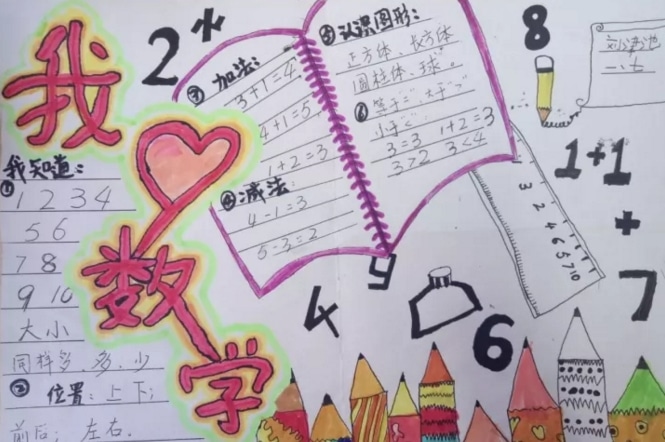 我
数
学
我知道:
①
1 2 3 4
5 6
7 8
9 10
大小
同样多、多、少
② 位置:上下;
前后; 左右.
2
③ 加法:
3+1=4
4+1=5
1+2=3
④ 减法:
4-1=3
5-3=2
⑤ 认识图形:
正方体、长方体
圆柱体、球。
⑥ 等于“=”、大于“>”
小于“<”
3=3 1+2=3
3>2 3<4
8
一、七
1+1
+
7
3 2 4 6 5 7 10
9
4
6